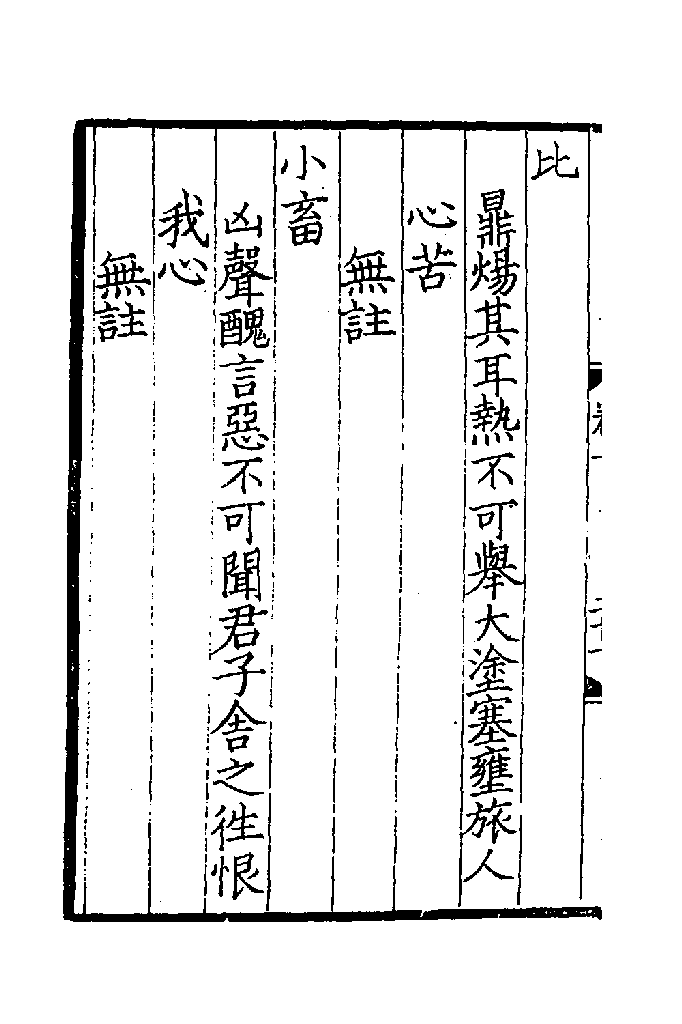 比
鼎煬其耳熱不可舉大塗塞壅旅人
心苦
無註
小畜
凶聲醜言惡不可聞君子舎之徃恨
我心
無註